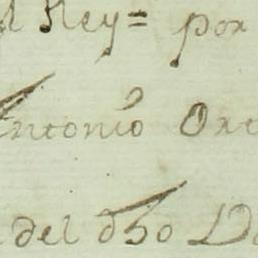 l Rey= por
Antonio Ort
del dho D